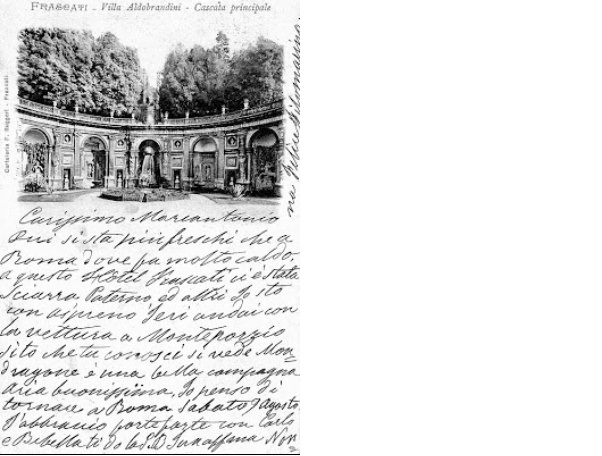 FRASCATI - Villa Aldobrandini - Cascata principale
Cartoleria F. Seggeri - Frascati
Carissimo Marcantonio
Qui si sta più freschi che a
Roma dove fa molto caldo.
a questo Hôtel Frascati ci è stata
Sciarra, Paternò ed altri Io sto
con Ieri andai con
la vettura a Monteporzio
sito che tu conosci si vede Mon
dragone è una bella campagna
aria buonissima, Io penso di
tornare a Roma Sabato 9 Agosto
T'abbraccio forte forte con Carlo
e Bebella ti do la S.B. Tua aff.ma Non
na